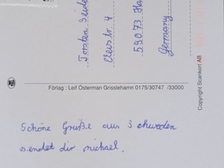 Torsten
Germany
Förlag: Leif Österman Grisslehamn 0175/30747 /33000
Copyright Scankort AB
Schöne Grüße aus Schweden
sendet dir michael.